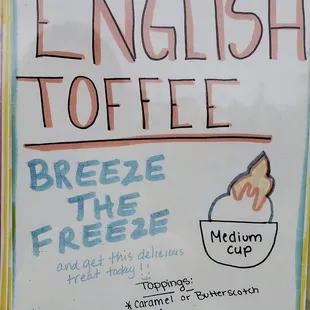 ENGLISH
TOFFEE
BREEZE
THE
FREEZE
and get this delicious
treat today!!
Medium
cup
Toppings:
*caramel or Butterscotch